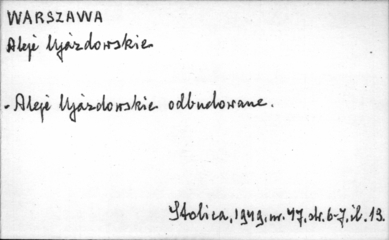 WARSZAWA
Aleje Ujazdowskie
- Aleje Ujazdowskie odbudowane.
Stolica, 1949, nr. 47, str. 6-7, il. 13.